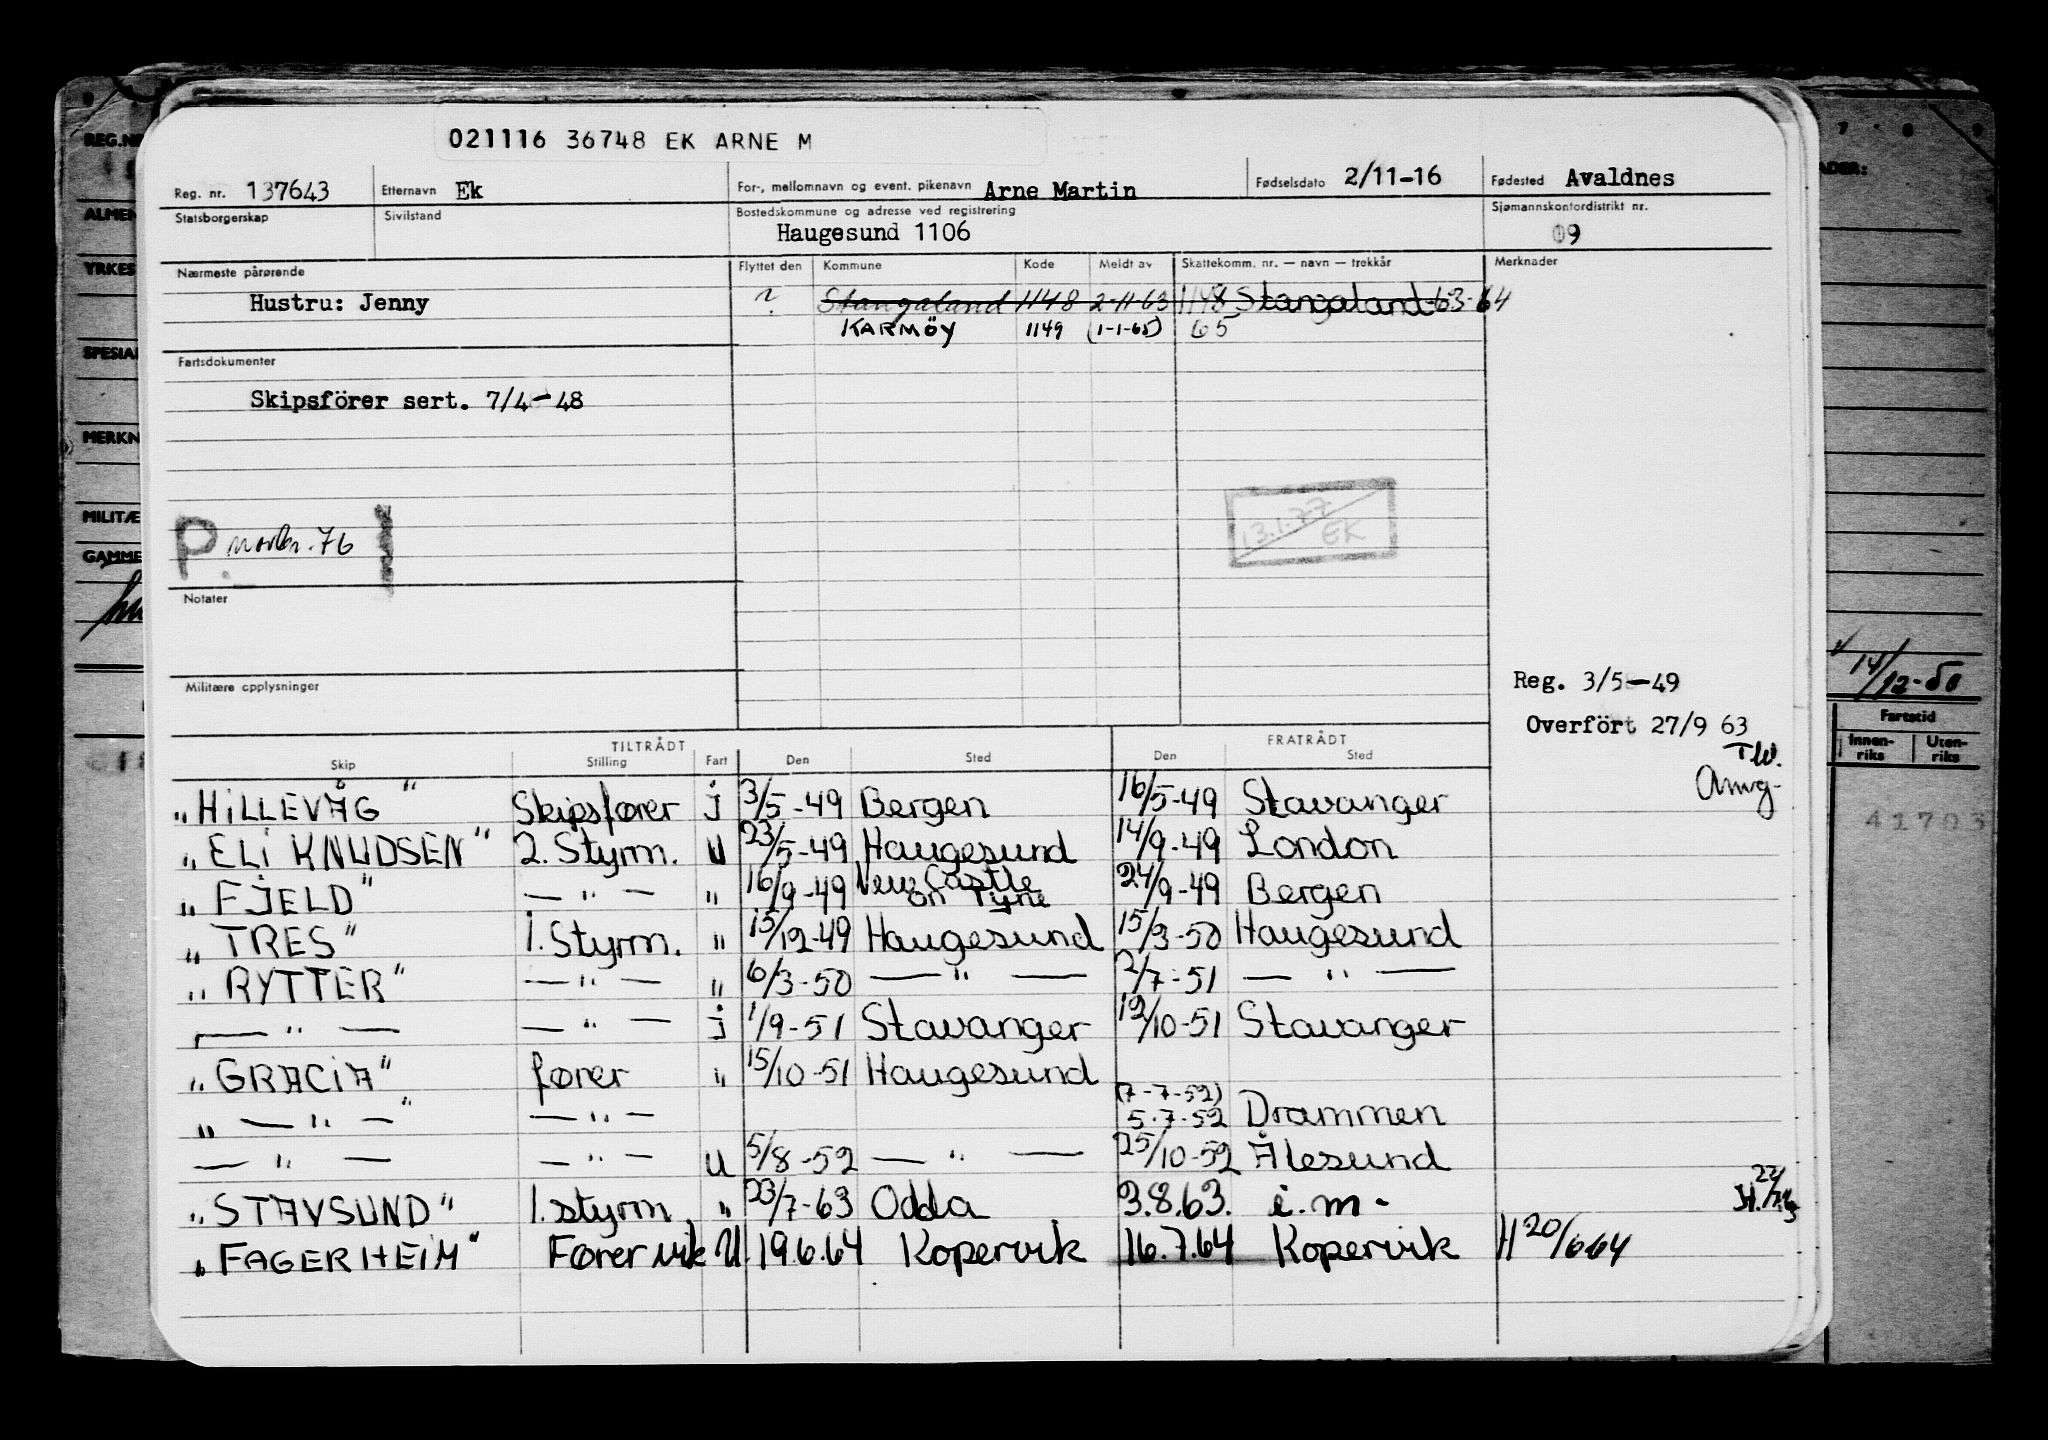 021116 36748 EK ARNE M
Reg. nr. 137643 Etternavn Ek For-, mellomnavn og event. pikenavn Arne Martin Fødselsdato 2/11-16 Fødested Avaldnes
Statsborgerskap Sivilstand Bostedskommune og adresse ved registrering Sjømannskontordistrikt nr.
Haugesund 1106 09
Nærmeste pårørende Flyttet den Kommune Kode Meldt av Skattekomm. nr. — navn — trekkår Merknader
Hustru: Jenny ? Stangaland 1148 2-11-63 1148 Stangaland-63-64
KARMÖY 1149 (1-1-65) 65
Fartsdokumenter
Skipsförer sert. 7/4-48
13.1.77
EK
P. novbr. 76
Notater
Militære opplysninger
Reg. 3/5-49
Overfört 27/9 63
TILTRÅDT FRATRÅDT
Skip Stilling Fart Den Sted Den Sted
"HILLEVÅG" Skipsfører J 3/5-49 Bergen 16/5-49 Stavanger
"ELI KNUDSEN" 2. Styrm. U 23/5-49 Haugesund 14/9-49 London
"FJELD" — " — " 16/9-49 New Castle on Tyne 24/9-49 Bergen
"TRES" 1. Styrm. " 15/12-49 Haugesund 15/3-50 Haugesund
"RYTTER" — " — " 6/3-50 — " — 2/7-51 — " —
— " — — " — J 1/9-51 Stavanger 12/10-51 Stavanger
"GRACIA" fører " 15/10-51 Haugesund
(7-7-52)
" — " — " — " — 5.7-52 Drammen
— " — — " — U 5/8-52 — " — 25/10-52 Ålesund
"STAVSUND" 1. styrm. " 23/7-63 Odda 3.8.63. i.m.
"FAGERHEIM" Fører vik U. 19.6.64 Kopervik 16.7.64 Kopervik H 20/6 64
REG.NR
ALMEN
YRKES
SPESIA
MERKN
MILITÆ
GAMME
7 8 9
14/12-50
Fartstid
Innen-riks Uten-riks
41703